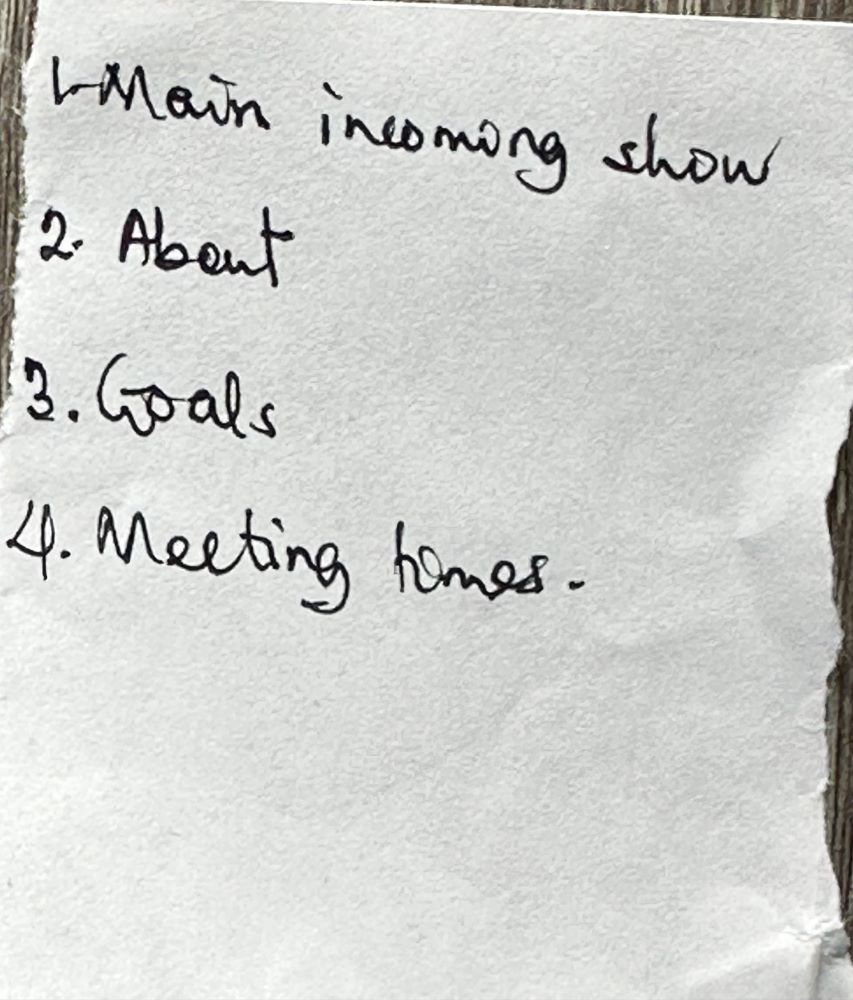 1- Main incoming show
2. About
3. Goals
4. Meeting times.